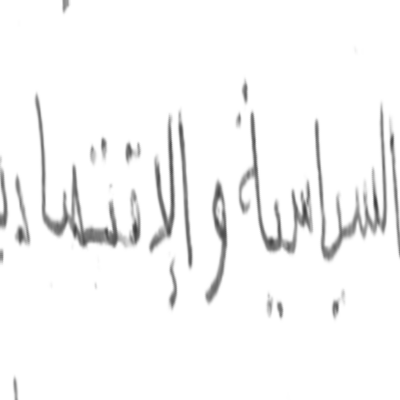 السياسية و الإقتصادي